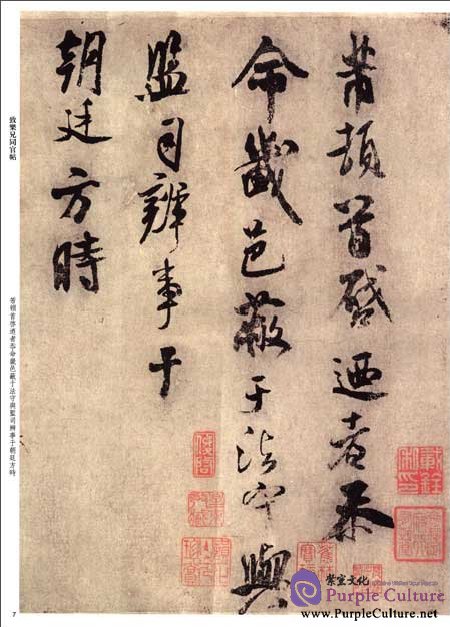 芾頓首啓迺者忝
命畿邑蔽于法守與
監司辨事于
朝廷方時
致樂兄同官帖
芾頓首啓迺者忝命畿邑蔽于法守與監司辨事于朝廷方時
7
文化
Purple Culture
www.PurpleCulture.net